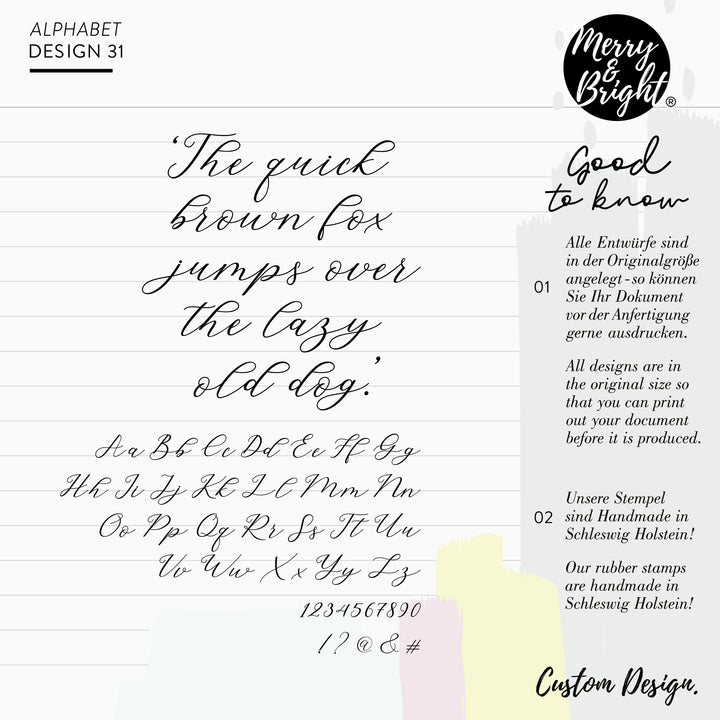 ALPHABET
DESIGN 31
Merry
&
Bright®
'The quick
brown fox
jumps over
the lazy
old dog.'
Aa Bb Cc Dd Ee Ff Gg
Hh Ii Jj Kk Ll Mm Nn
Oo Pp Qq Rr Ss Tt Uu
Vv Ww Xx Yy Zz
1234567890
! ? @ & #
Good
to know
01
Alle Entwürfe sind
in der Originalgröße
angelegt - so können
Sie Ihr Dokument
vor der Anfertigung
gerne ausdrucken.
All designs are in
the original size so
that you can print
out your document
before it is produced.
02
Unsere Stempel
sind Handmade in
Schleswig Holstein!
Our rubber stamps
are handmade in
Schleswig Holstein!
Custom Design.